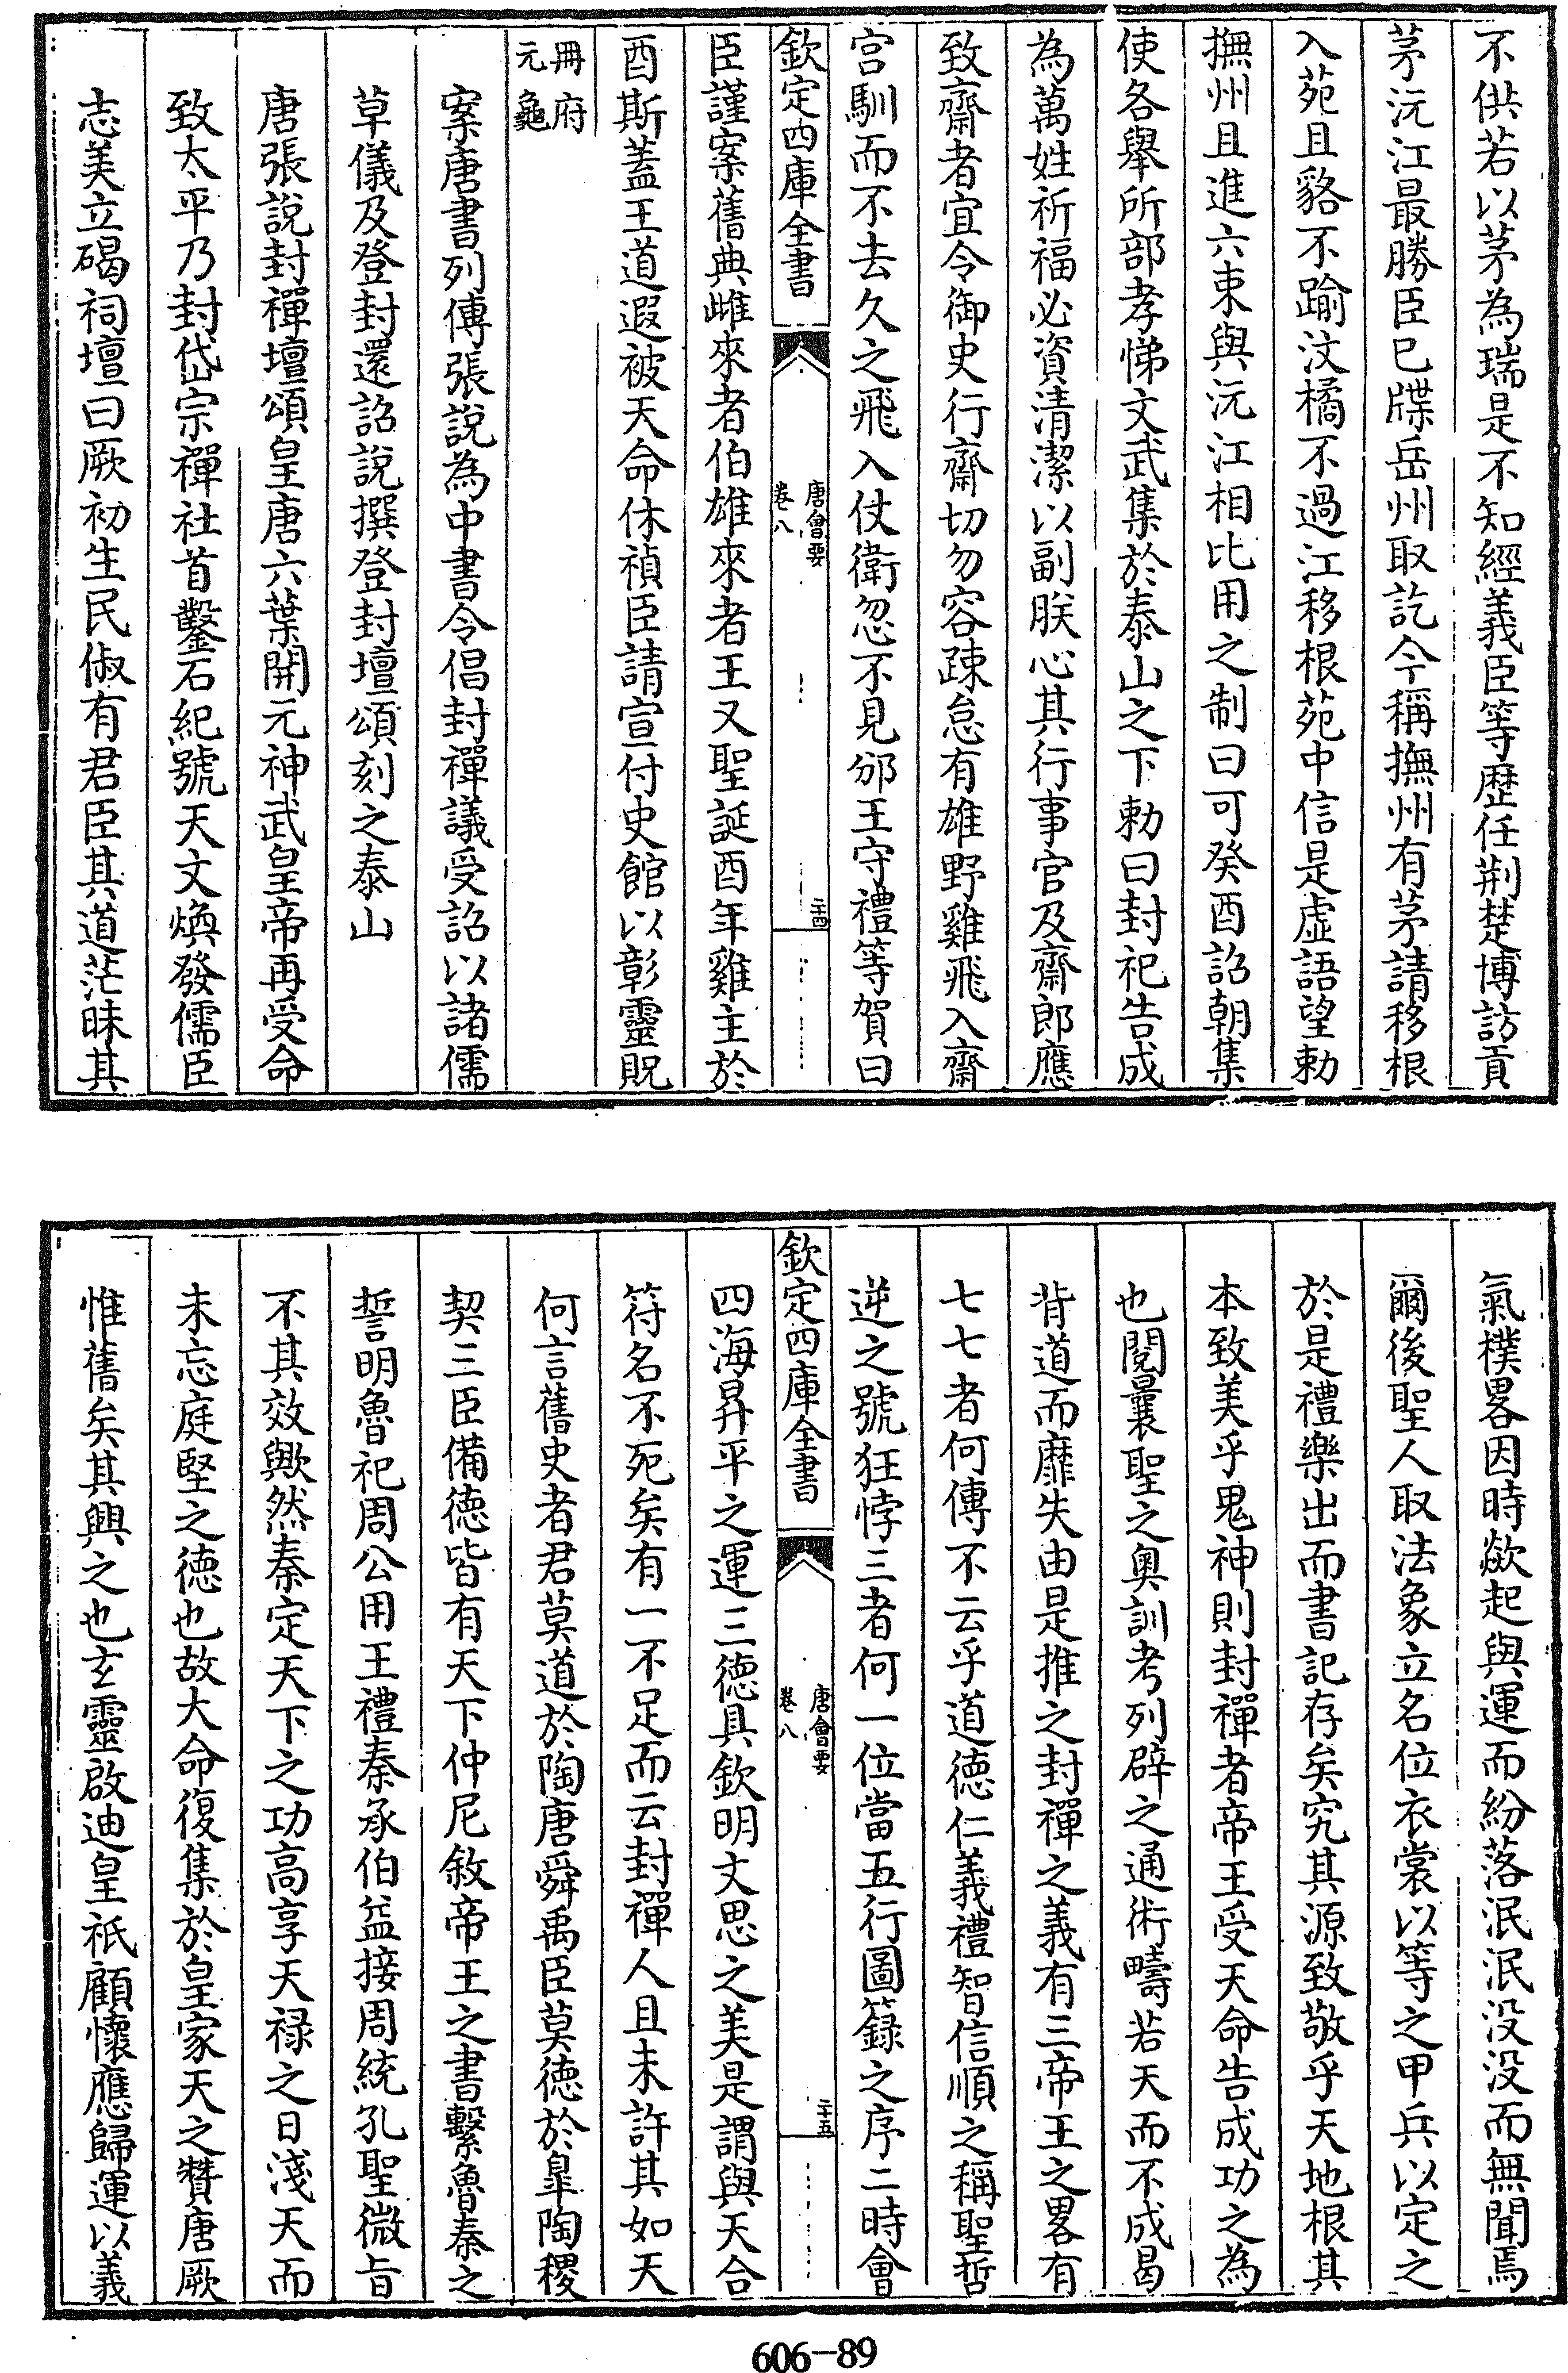 不供若以茅為瑞是不知經義臣等歷任荆楚博訪貢
茅沅江最勝臣已牒岳州取訖今稱撫州有茅請移根
入苑且貉不踰汶橘不過江移根苑中信是虛語望勅
撫州且進六束與沅江相比用之制曰可癸酉詔朝集
使各舉所部孝悌文武集於泰山之下勅曰封祀告成
為萬姓祈福必資清潔以副朕心其行事官及齋郎應
致齋者宜令御史行齋切勿容疎怠有雄野雞飛入齋
宫馴而不去久之飛入仗衛忽不見邠王守禮等賀曰
欽定四庫全書
唐會要
卷八
二十四
臣謹案舊典雌來者伯雄來者王又聖誕酉年雞主於
酉斯蓋王道遐被天命休禎臣請宣付史館以彰靈貺
冊府
元龜
案唐書列傳張說為中書令倡封禪議受詔以諸儒
草儀及登封還詔說撰登封壇頌刻之泰山
唐張說封禪壇頌皇唐六葉開元神武皇帝再受命
致太平乃封岱宗禪社首鑿石紀號天文煥發儒臣
志美立碣祠壇曰厥初生民俶有君臣其道茫昧其
氣樸畧因時歘起與運而紛落泯泯没没而無聞焉
爾後聖人取法象立名位衣裳以等之甲兵以定之
於是禮樂出而書記存矣究其源致敬乎天地根其
本致美乎鬼神則封禪者帝王受天命告成功之為
也閱曩聖之奥訓考列辟之通術疇若天而不成曷
背道而靡失由是推之封禪之義有三帝王之畧有
七七者何傳不云乎道德仁義禮智信順之稱聖哲
逆之號狂悖三者何一位當五行圖籙之序二時會
欽定四庫全書
唐會要
卷八
二十五
四海昇平之運三德具欽明文思之美是謂與天合
符名不死矣有一不足而云封禪人且未許其如天
何言舊史者君莫道於陶唐舜禹臣莫德於臯陶稷
契三臣備德皆有天下仲尼敘帝王之書繫魯秦之
誓明魯祀周公用王禮秦承伯益接周統孔聖微旨
不其效歟然秦定天下之功高享天禄之日淺天而
未忘庭堅之德也故大命復集於皇家天之贊唐厥
惟舊矣其興之也玄靈啟迪皇祇顧懷應歸運以義
606-89